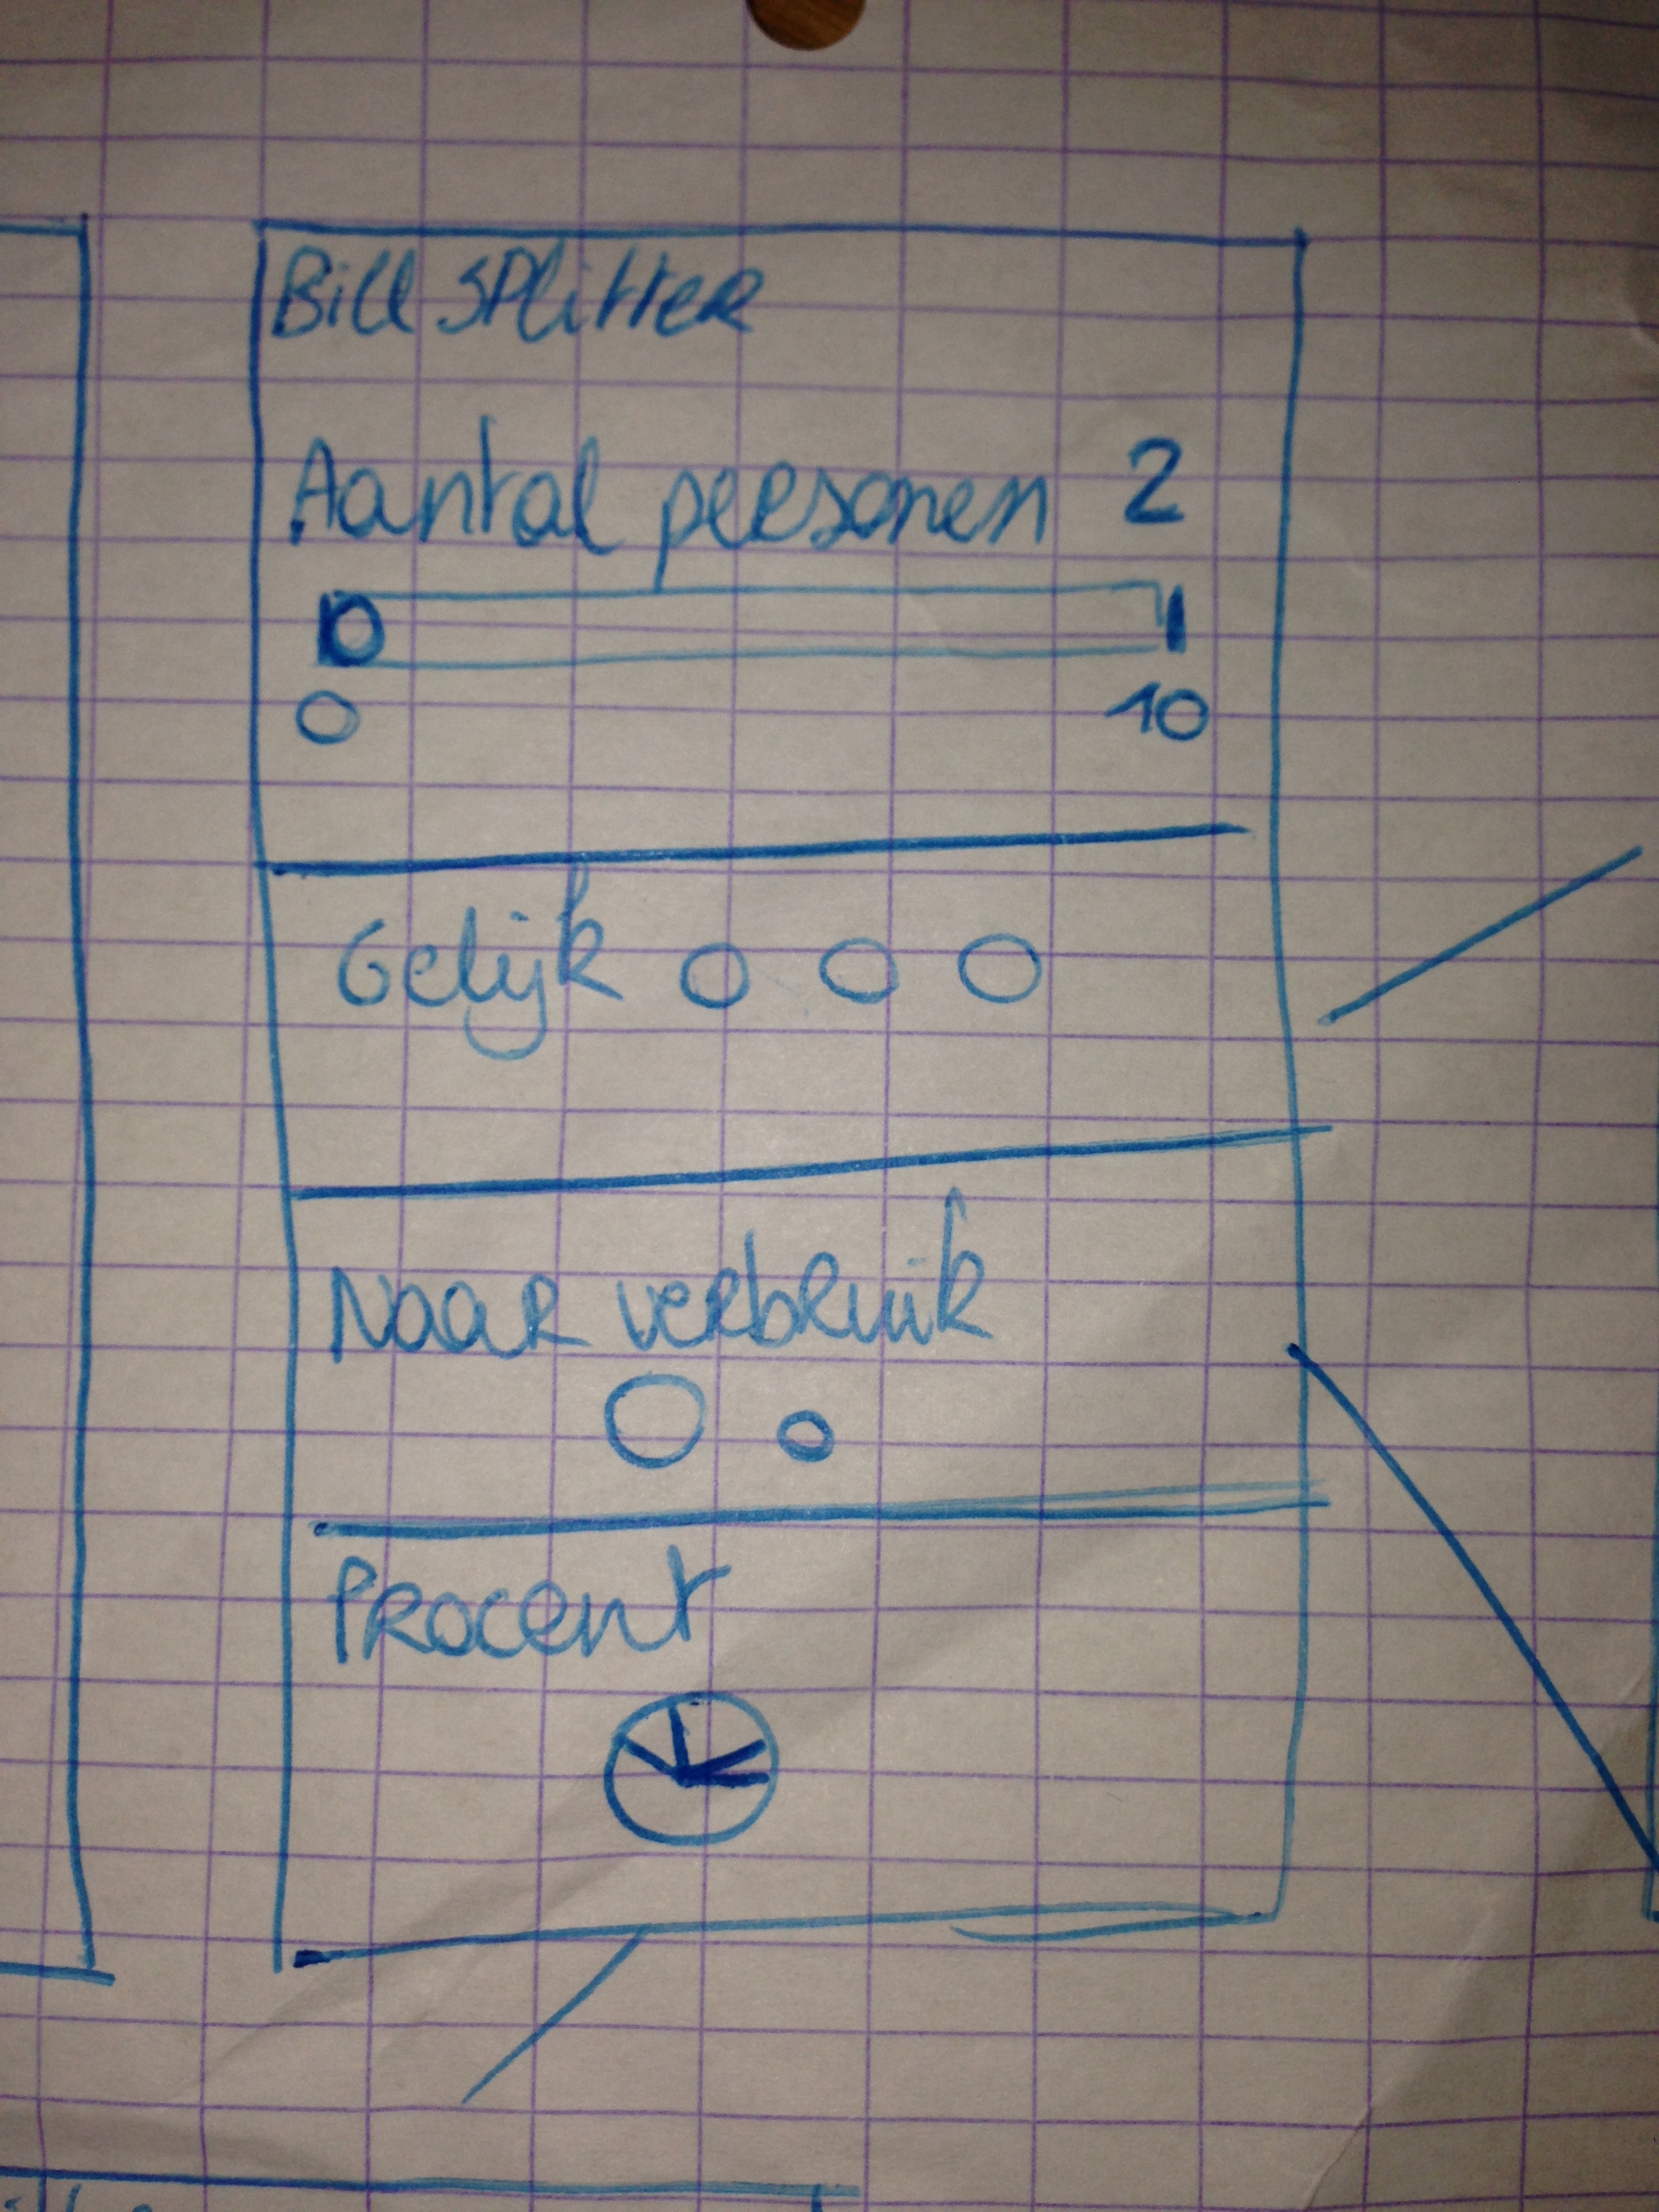 Bill splitter
Aantal personen 2
0 10
Gelijk
Naar verbruik
Procent